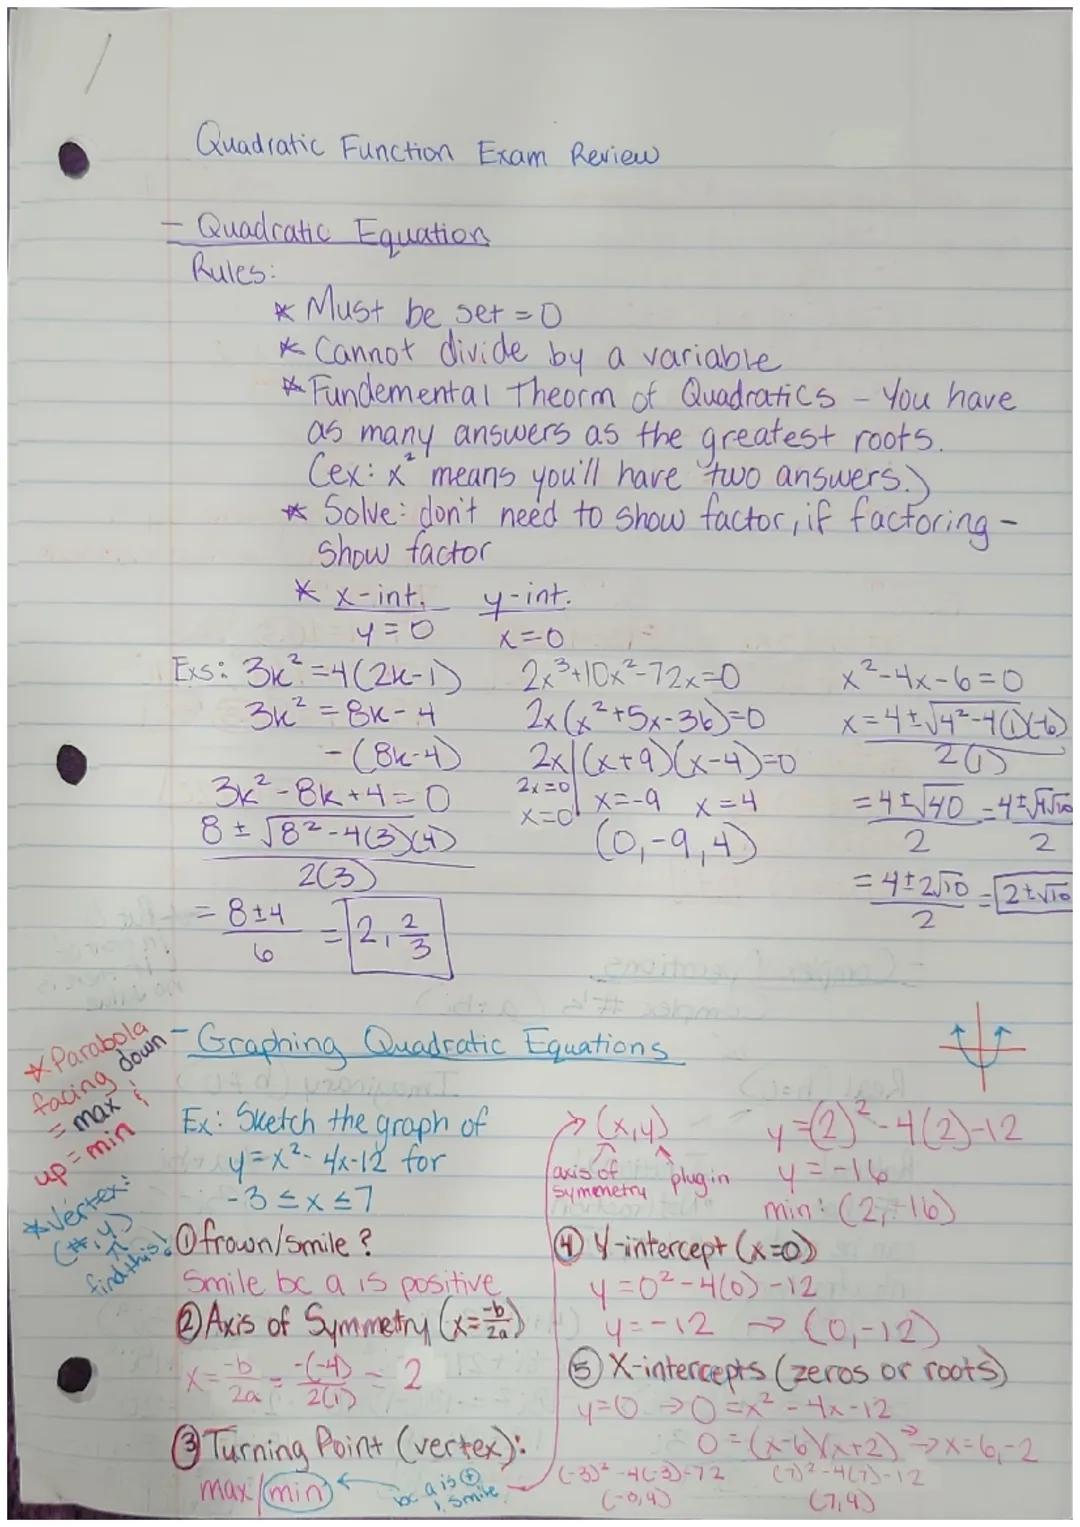 Quadratic Function Exam Review
- Quadratic Equation
Rules:
* Must be set = 0
* Cannot divide by a variable
* Fundemental Theorm of Quadratics - You have
as many answers as the greatest roots.
(ex: x² means you'll have two answers.)
* Solve: don't need to show factor, if factoring -
show factor
* x-int. y-int.
y=0 x=0
Exs: 3k²=4(2k-1)
3k²=8k-4
-(8k-4)
3k²-8k+4=0
8±√8²-4(3)(4)
2(3)
= 8±4
6
= 2, 2/3
2x³+10x²-72x=0
2x(x²+5x-36)=0
2x|(x+9)(x-4)=0
2x=0 x=-9 x=4
x=0
(0,-9,4)
x²-4x-6=0
x=4±√4²-4(1)(-6)
2(1)
=4±√40 =4±√4√10
2 2
=4±2√10 = 2±√10
2
* Parabola
facing down
= max &
up = min
* Vertex:
(#, y)
find this!
- Graphing Quadratic Equations
Ex: Sketch the graph of
y=x²-4x-12 for
-3≤x≤7
① frown/smile?
Smile bc a is positive
② Axis of Symmetry (x=-b/2a)
x= -b/2a = -(-4)/2(1) = 2
③ Turning Point (vertex):
max/min
bc a is ⊕
, smile
→ (x,y)
axis of
symmetry
plug in
y=(2)²-4(2)-12
y=-16
min: (2,-16)
④ Y-intercept (x=0)
y=0²-4(0)-12
y=-12 → (0,-12)
⑤ X-intercepts (zeros or roots)
y=0 → 0=x²-4x-12
0=(x-6)(x+2) → x=6,-2
(7)²-4(7)-12
(7,9)